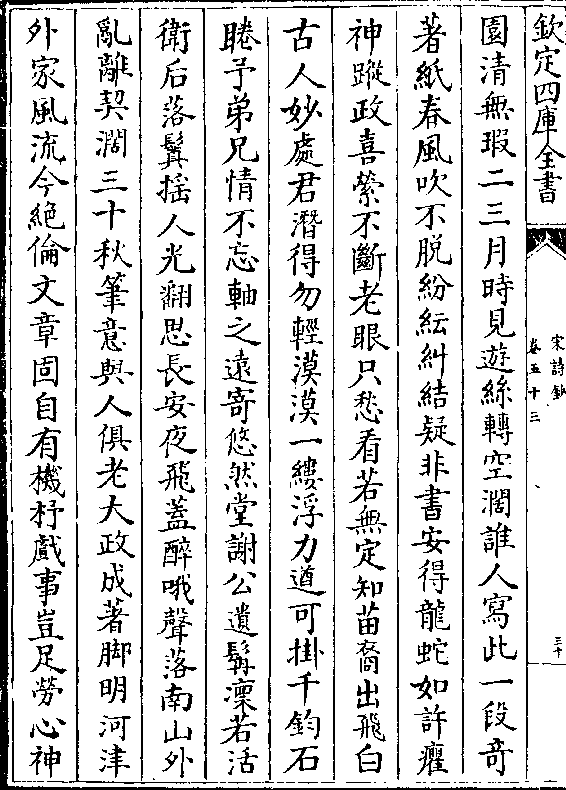 欽定四庫全書
宋詩鈔
卷五十三
三十
園清無瑕二三月時見遊絲轉空濶誰人寫此一段竒
著紙春風吹不脫紛紜糾結疑非書安得龍蛇如許癯
神蹤政喜縈不斷老眼只愁看若無定知苗裔出飛白
古人妙處君潛得勿輕漠漠一縷浮力遒可掛千鈞石
睠予弟兄情不忘軸之遠寄悠然堂謝公遺髯凜若活
衛后落鬒揺人光翻思長安夜飛蓋醉哦聲落南山外
亂離契濶三十秋筆意與人俱老大政成著脚明河津
外家風流今絶倫文章固自有機杼戲事豈足勞心神